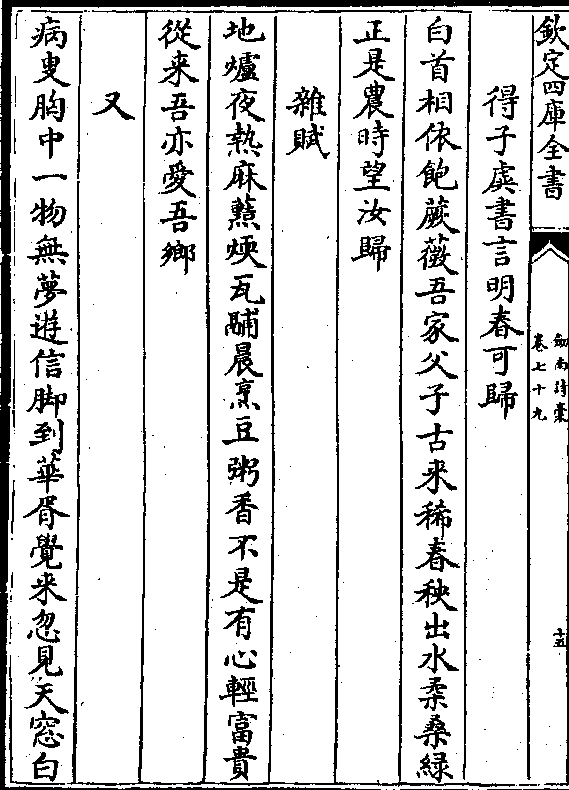 欽定四庫全書
劍南詩稾
卷七十九
十五
得子虡書言明春可歸
白首相依飽蕨薇吾家父子古来稀春秧出水柔桑緑
正是農時望汝歸
雜賦
地爐夜熱麻藍煗瓦鬴晨烹豆粥香不是有心輕富貴
從来吾亦愛吾鄉
又
病叟胸中一物無夢遊信脚到華胥覺来忽見天窓白